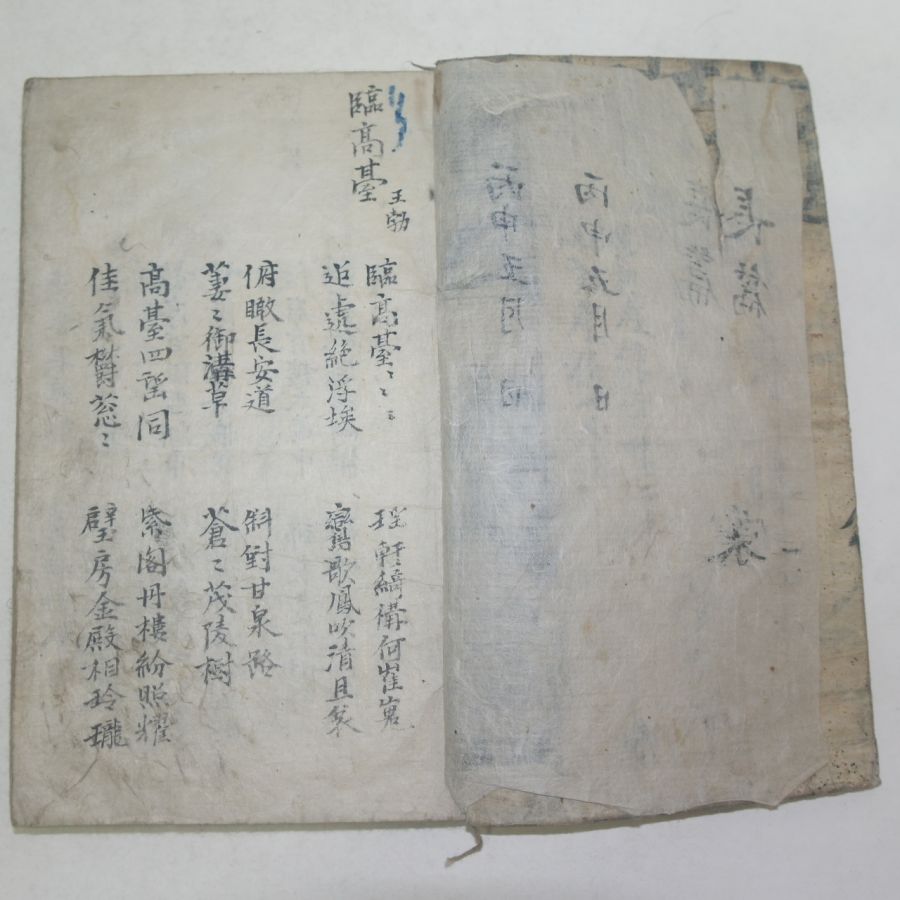 長篇
長篇
丙申五月 日
丙申五月 日
臨高臺
王勃
臨高臺〻〻
迢遞絶浮埃
瑤軒綺構何崔嵬
鸞歌鳳吹清且哀
俯瞰長安道
萋〻御溝草
斜對甘泉路
蒼〻茂陵樹
高臺四望同
佳氣欝葱〻
紫閣丹樓紛照耀
璧房金殿相玲瓏